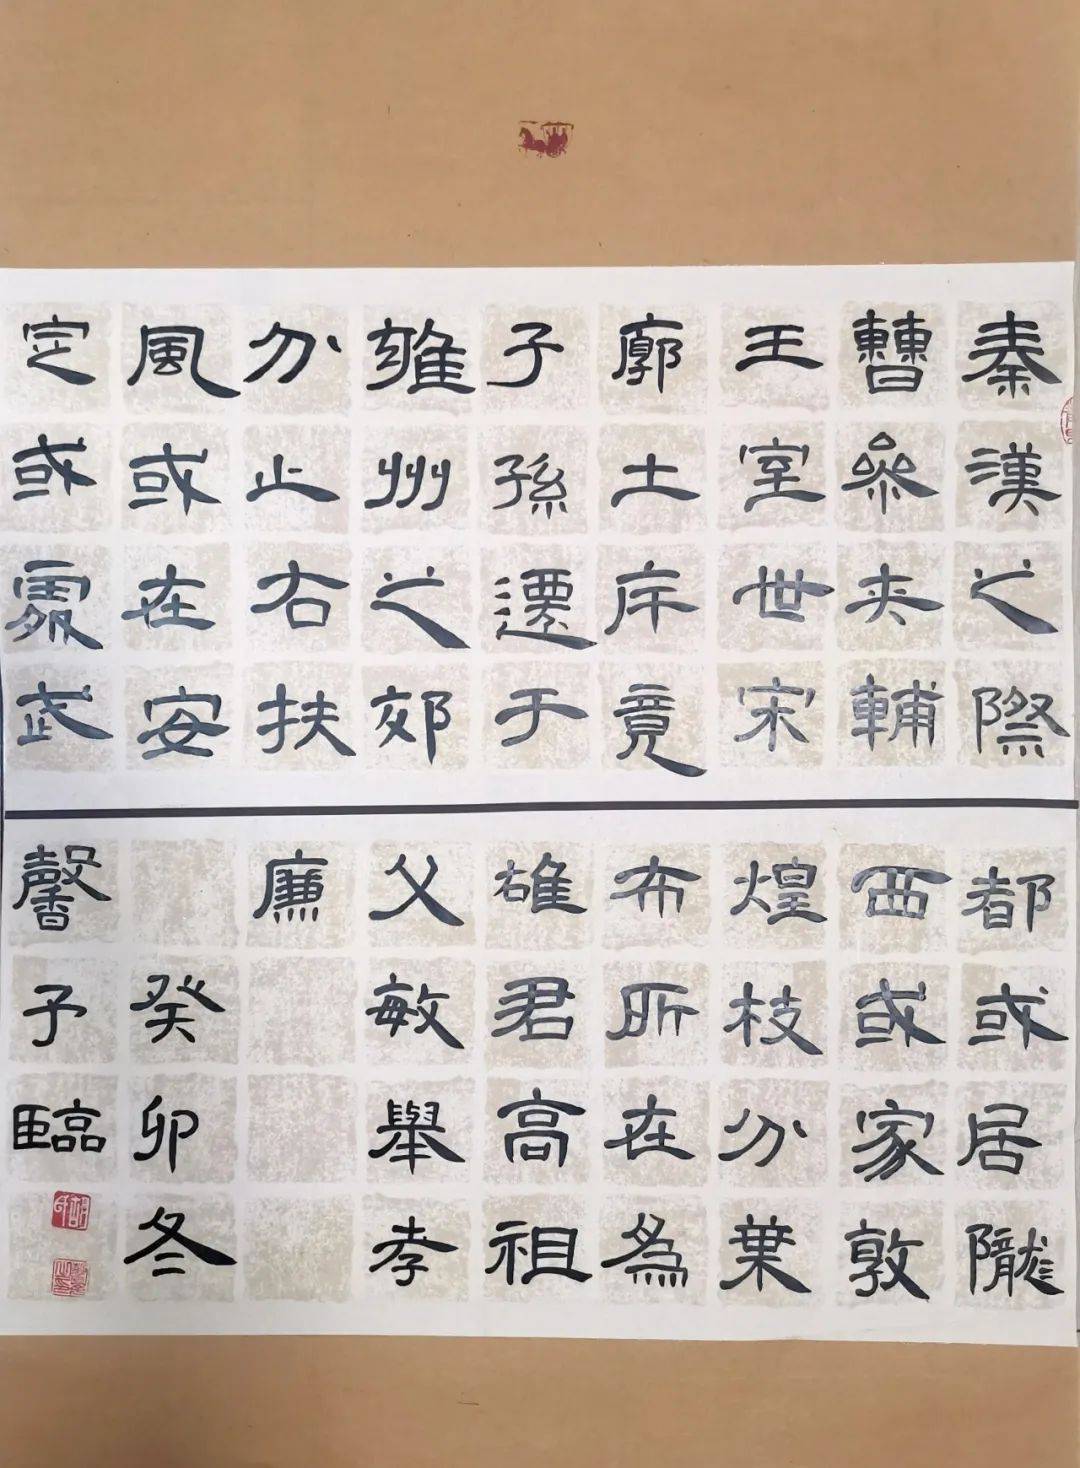 秦漢之際
曹參夾輔
王室世宗
廓土斥竟
子孫遷于
雍州之郊
分止右扶
風或在安
定或處武
都或居隴
西或家敦
煌枝分葉
布所在為
雄君高祖
父敏舉孝
廉
癸卯冬
馨予臨